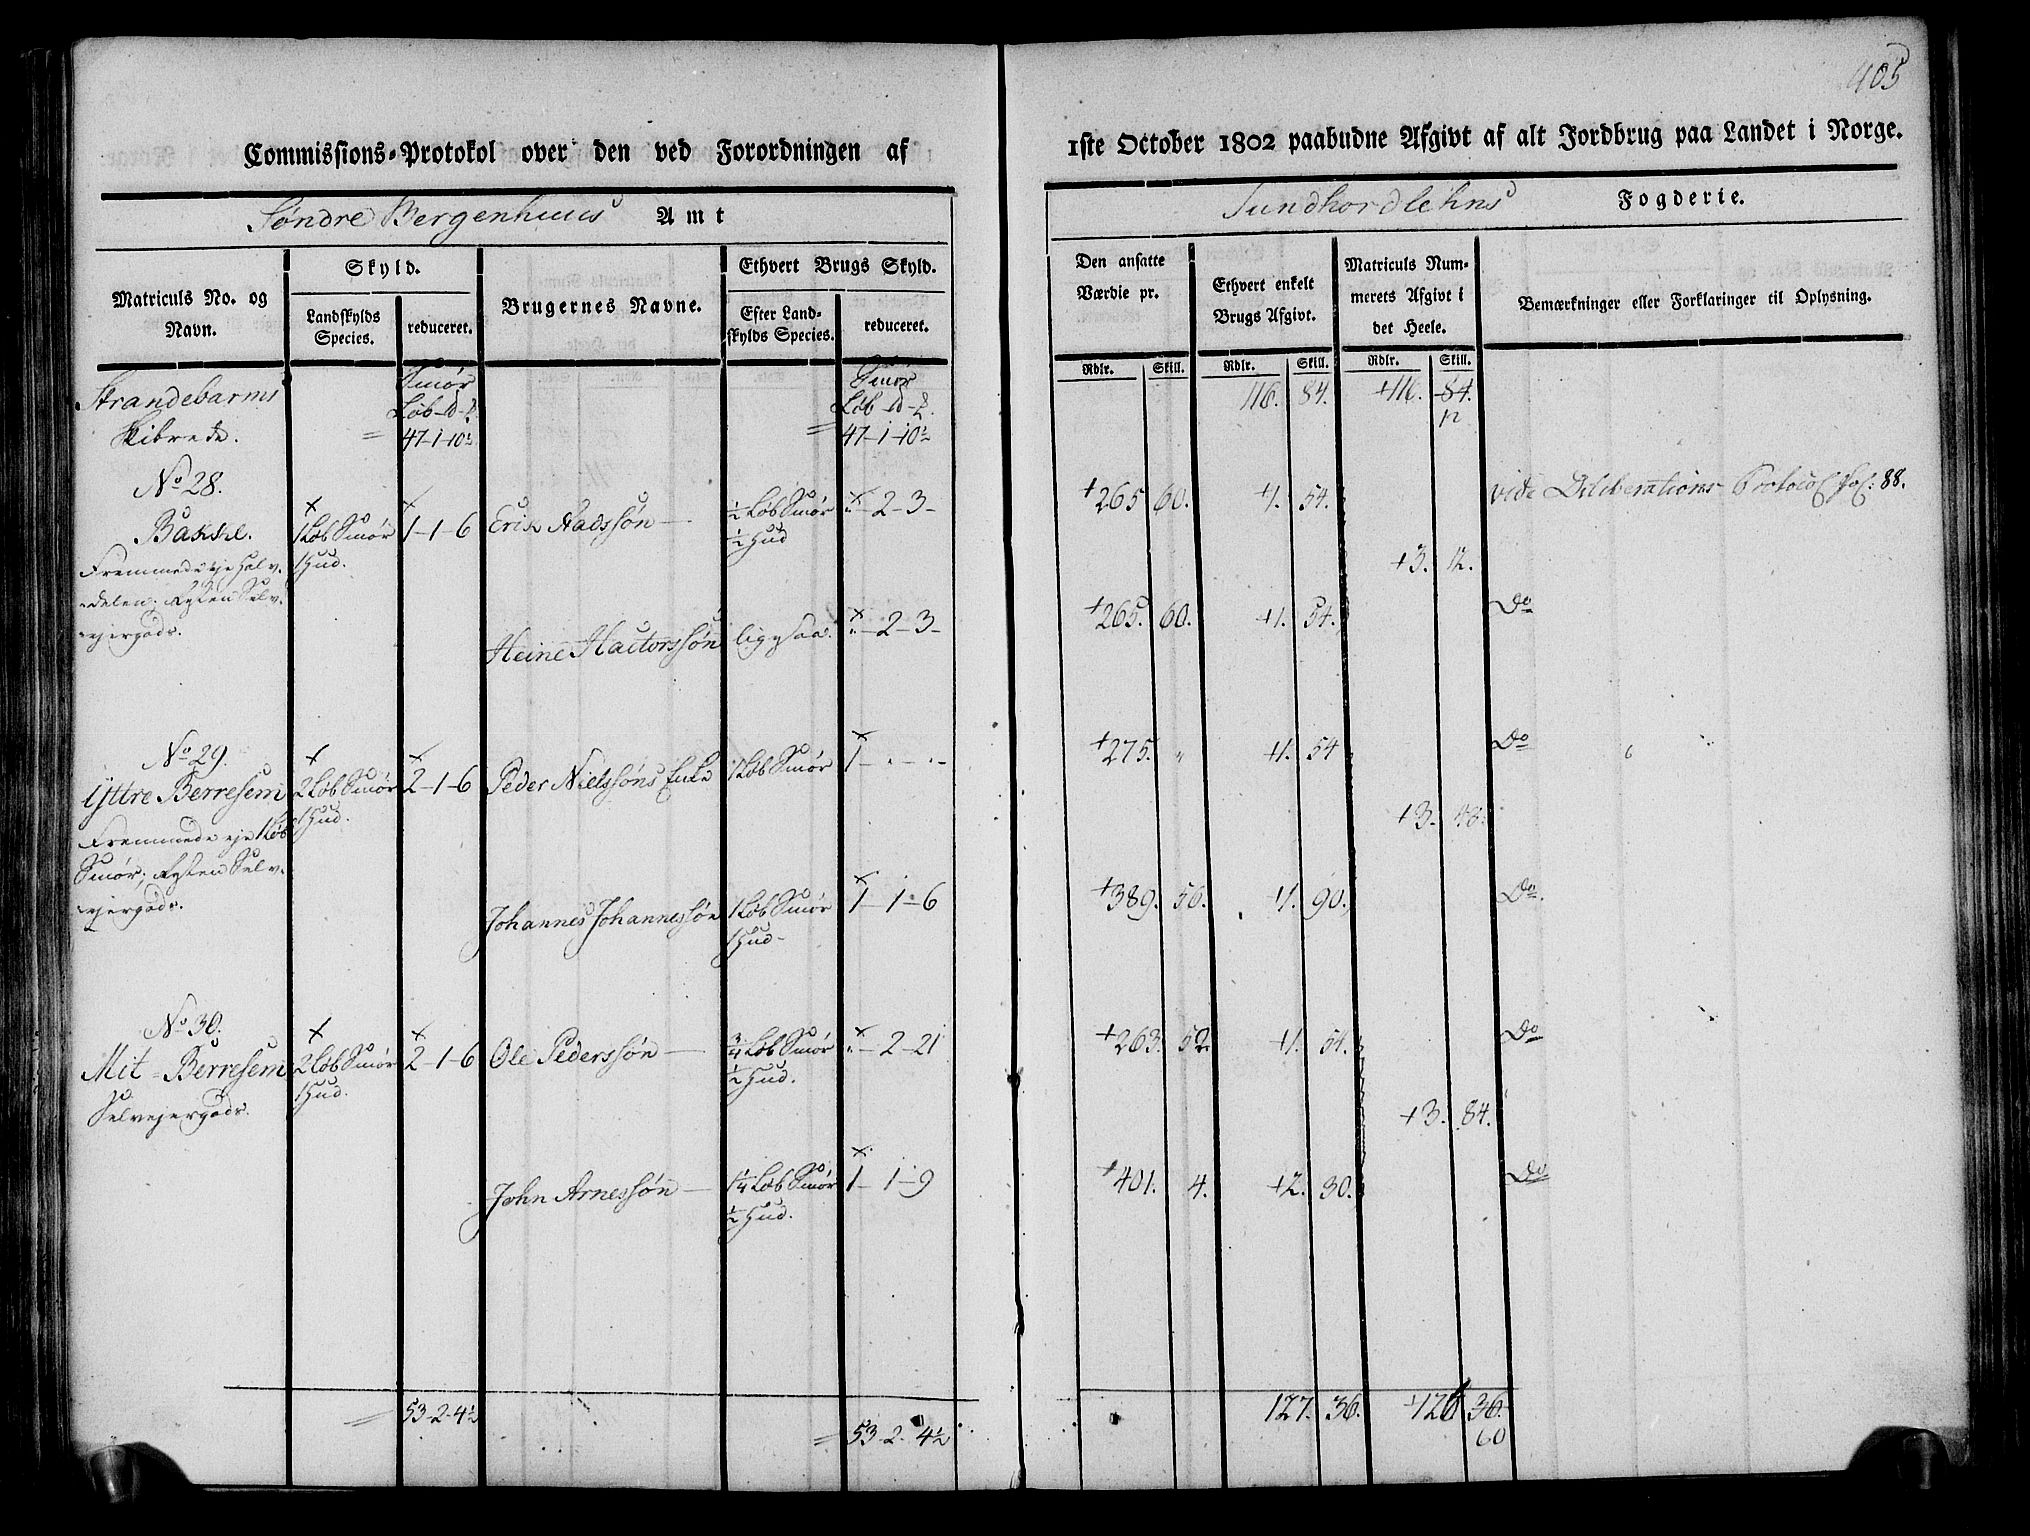 405
Commissions-Protokol over den ved Forordningen af
1ste October 1802 paabudne Afgivt af alt Jordbrug paa Landet i Norge.
Søndre Bergenhuus Amt
Sundhordlehns Fogderie.
Matriculs No. og Navn.
Skyld.
Landskylds Species.
reduceret.
Brugernes Navne.
Ethvert Brugs Skyld.
Efter Landskylds Species.
reduceret.
Den ansatte Værdie pr.
Rdlr. Skill.
Ethvert enkelt Brugs Afgivt.
Rdlr. Skill.
Matriculs Nummerets Afgivt i det Heele.
Rdlr. Skill.
Bemærkninger eller Forklaringer til Oplysning.
Strandebarms Skibrede.
Smør Løb
= 47-1-10½
Smør Løb
= 47-1-10½
116. 84. +116. 84.
12
No 28.
Bakke.
Fremmede eje Halv-
delen; Resten Selv-
ejergods.
1 Løb Smør
1 Hud.
1-1-6
Erik Aadssøn
½ Løb Smør
½ Hud
"-2-3-
+265 60. +1. 54.
vide Deliberations-Protocol fol: 88.
+3. 12.
Heine Hactorssøn
ligesaa.
"-2-3-
+265. 60. +1. 54.
Do
No 29.
Yttre Berresem
Fremmede eje 1 Løb
Smør; Resten Selv-
ejergods.
2 Løb Smør
1 Hud.
2-1-6
Peder Nielssøns Enke
1 Løb Smør
1-"-"-
+275. " +1. 54
Do
+3. 48.
Johannes Johannessøn
1 Løb Smør
1 Hud-
1-1-6
+389. 56. +1. 90.
Do.
No 30.
Mit-Berresem
Selvejergods.
2 Løb Smør
1 Hud.
2-1-6
Ole Pederssøn
¾ Løb Smør
½ Hud.
"-2-21
+263. 52. +1. 54.
Do
+3. 84.
John Arnessøn
1¼ Løb Smør
½ Hud.
1-1-9
+401. 4. +2. 30.
Do
= 53-2-4½
= 53-2-4½
127. 36. 36.
60